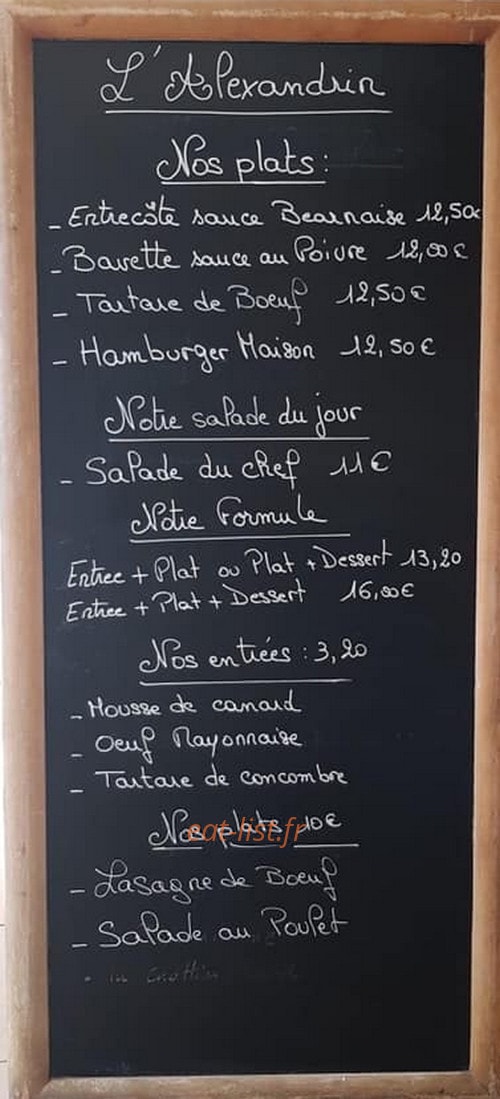 L'Alexandrin
Nos plats:
- Entrecôte sauce Bearnaise 12,50€
- Bavette sauce au Poivre 12,00€
- Tartare de Boeuf 12,50€
- Hamburger Maison 12,50€
Notre salade du jour
- Salade du chef 11€
Notre Formule
Entree + Plat ou Plat + Dessert 13,20
Entree + Plat + Dessert 16,00€
Nos entrées : 3,20
- Mousse de canard
- Oeuf Mayonnaise
- Tartare de concombre
Nos plats 10€
eat-list.fr
- Lasagne de Boeuf
- Salade au Poulet